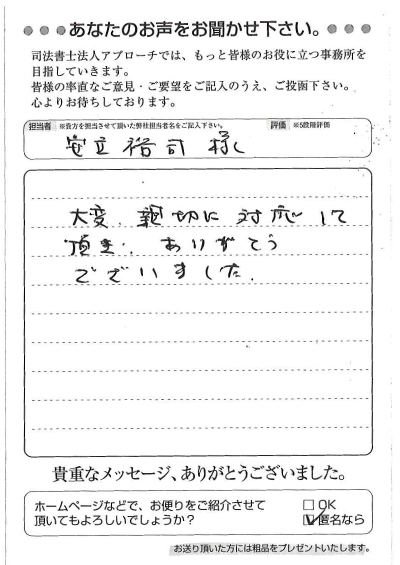 ●●●あなたのお声をお聞かせ下さい。●●●
司法書士法人アプローチでは、もっと皆様のお役に立つ事務所を
目指していきます。
皆様の率直なご意見・ご要望をご記入のうえ、ご投函下さい。
心よりお待ちしております。
担当者 ※貴方を担当させて頂いた弊社担当者名をご記入下さい。 評価 ※5段階評価
安立裕司 様
大変、親切に対応して
頂き、ありがとう
ございました。
貴重なメッセージ、ありがとうございました。
ホームページなどで、お便りをご紹介させて
頂いてもよろしいでしょうか?
□ OK
☑ 匿名なら
お送り頂いた方には粗品をプレゼントいたします。